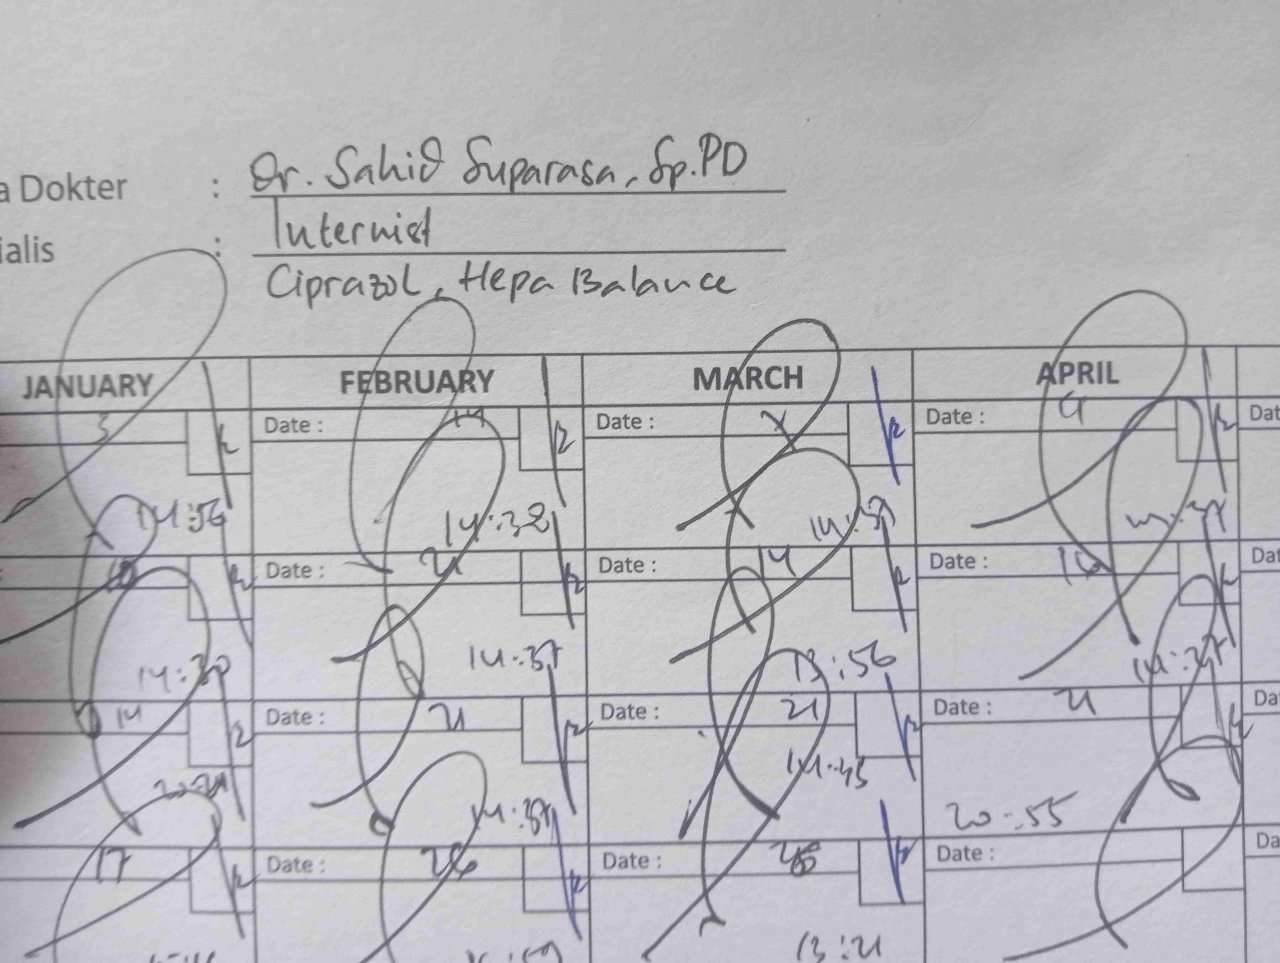 a Dokter : Dr. Sahid Suparasa, Sp.PD
ialis : Internist
Ciprazol, Hepa Balance
JANUARY FEBRUARY MARCH APRIL
3 Date : 14 Date : 7 Date : 9 Dat
14:56 14:38 14:37 14:37
: 10 Date : 21 Date : 14 Date : 16 Dat
14:30 14:37 13:56 14:37
14 Date : 21 Date : 21 Date : 21 Da
20:21 14:37 14:45 20:55
17 Date : 26 Date : Date : Da
13:21